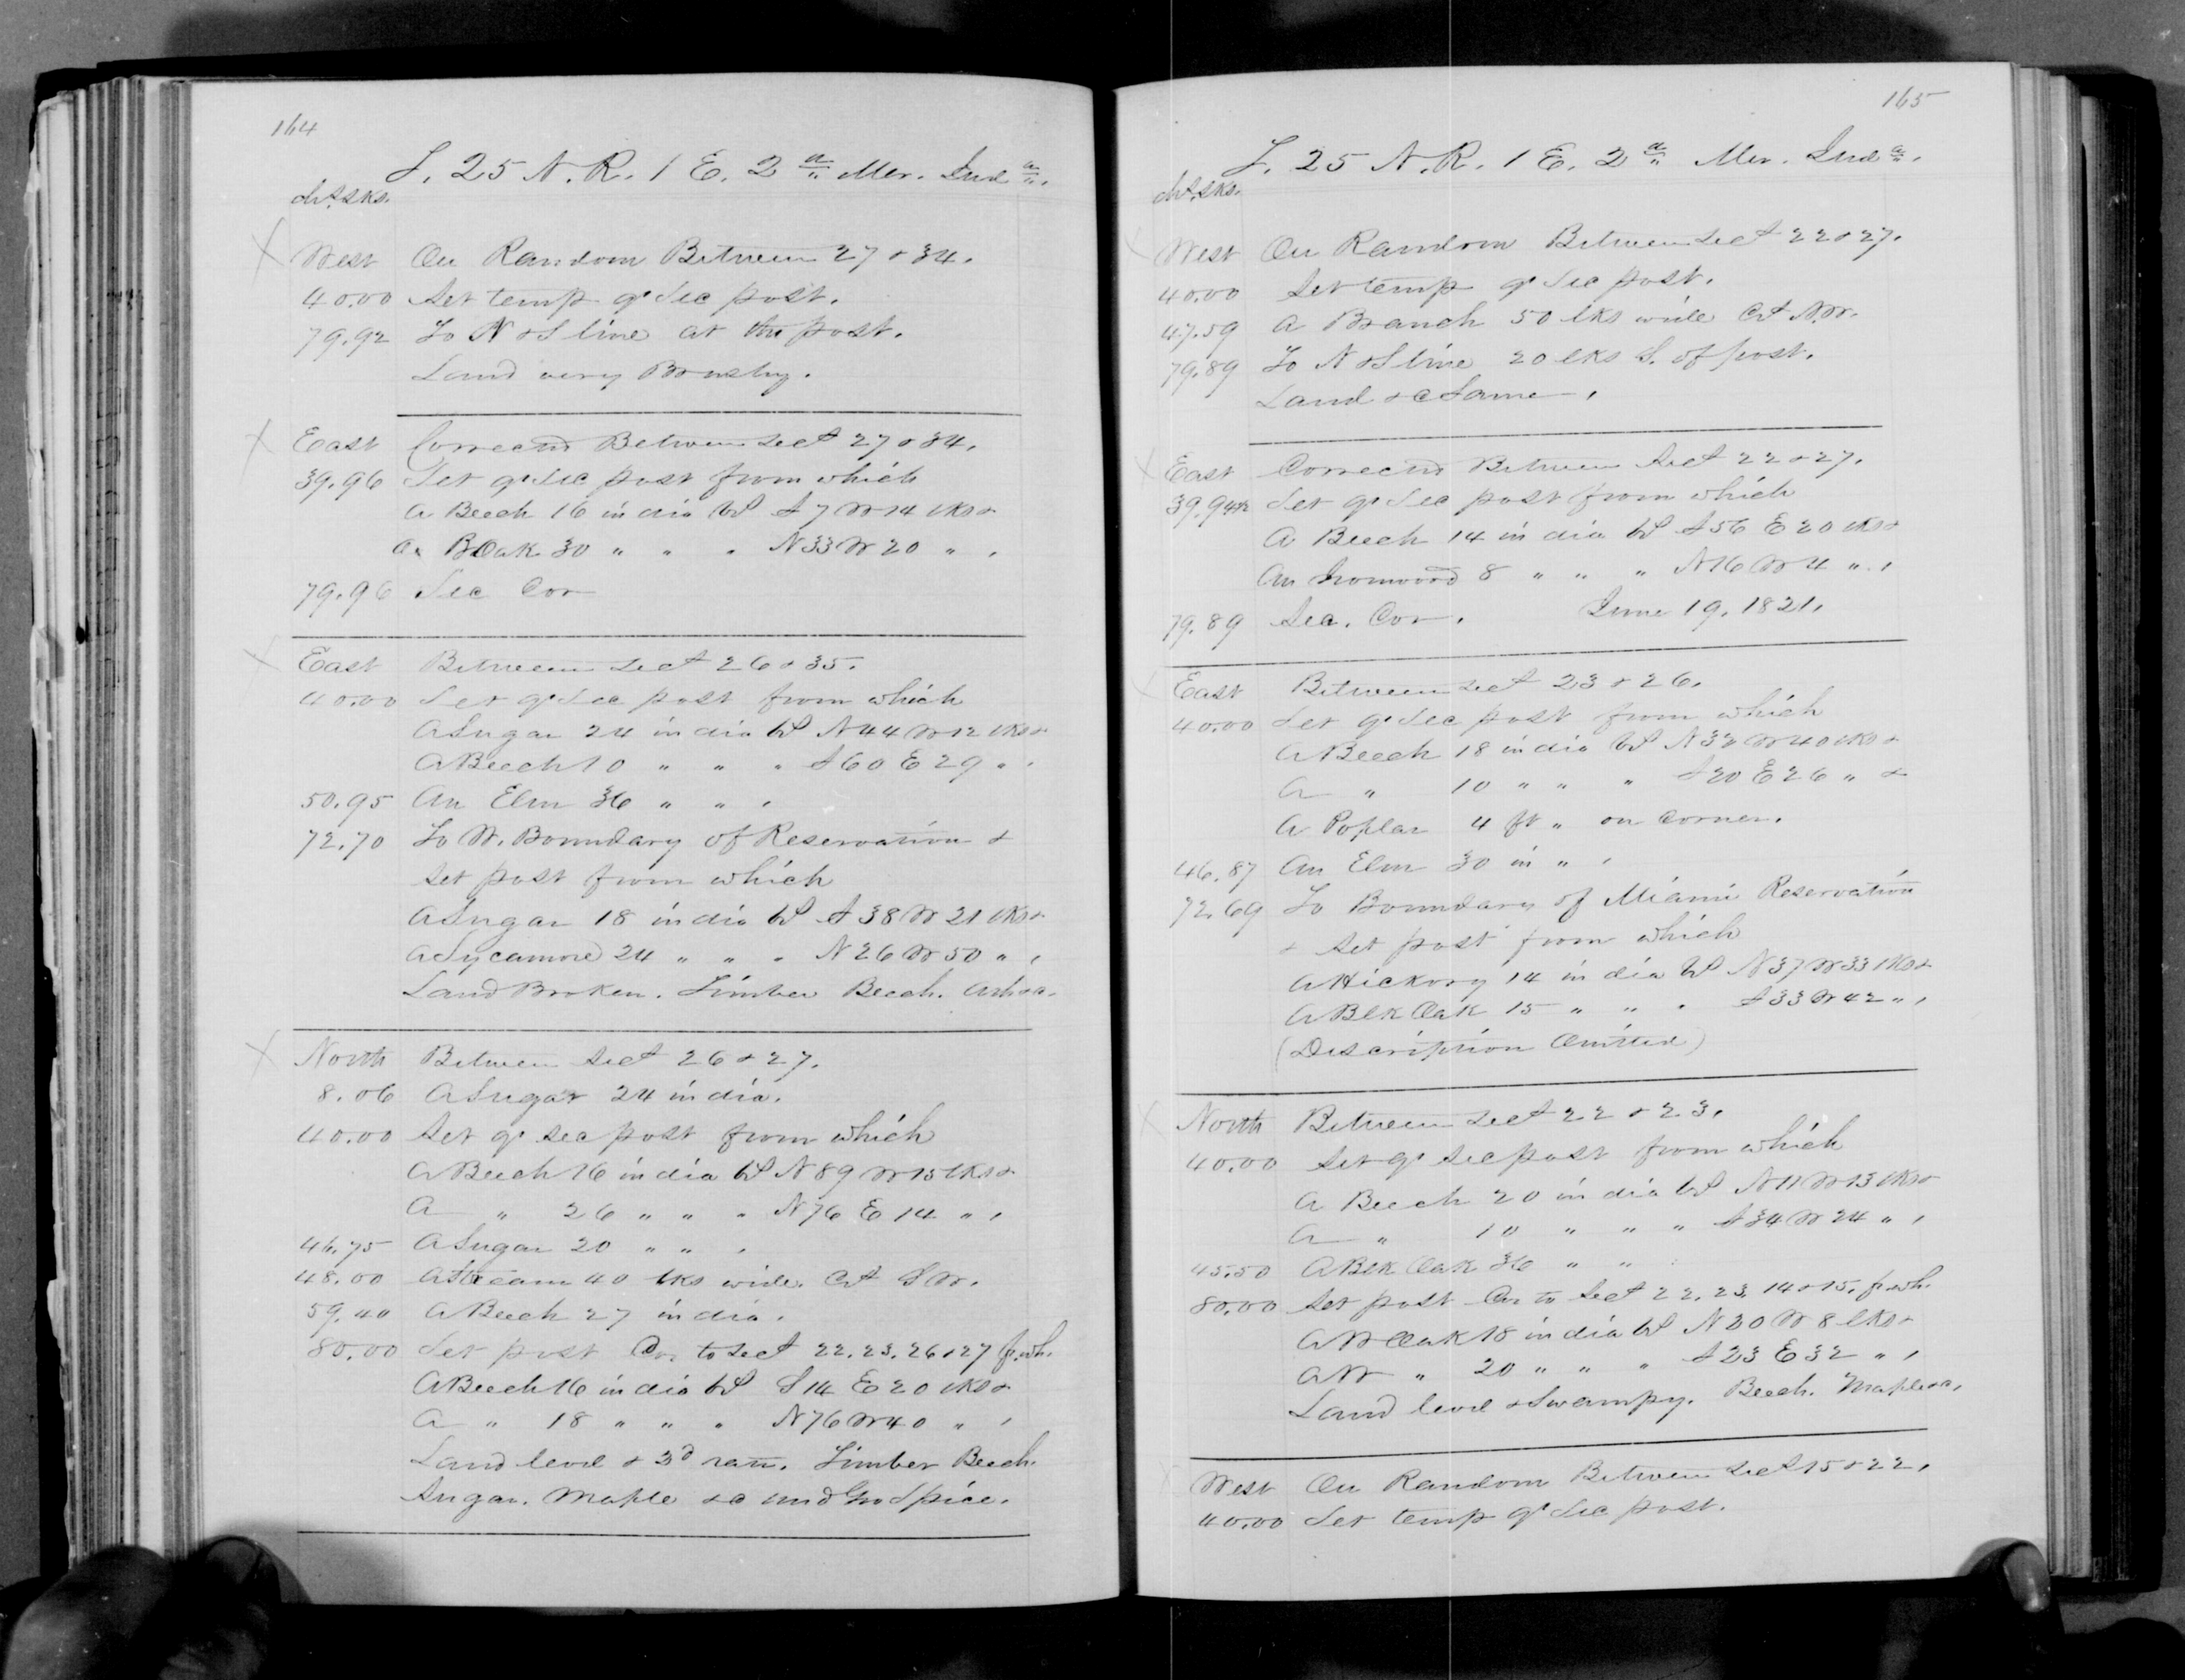 164
T. 25 N. R. 1 E. 2d Mer. Inda.
chs. lks.
West On Random Between 27 & 34.
40.00 Set temp qr Sec post.
79.92 To N & S line at the post.
Land very Brushy.
East Corrected Between Sects 27 & 34.
39.96 Set qr Sec post from which
A Beech 16 in dia bs S 7 W 14 lks &
A B Oak 30 " " " N 33 W 20 " .
79.96 Sec Cor
East Between Sects 26 & 35.
40.00 Set qr Sec post from which
A Sugar 24 in dia bs N 44 W 12 lks &
A Beech 10 " " " S 60 E 29 " .
50.95 An Elm 36 " " .
72.70 To W. Boundary of Reservation &
set post from which
A Sugar 18 in dia bs S 38 W 21 lks &
A Sycamore 24 " " " N 26 W 50 " .
Land Broken. Timber Beech. Ash &c.
North Between Sects 26 & 27.
8.06 A Sugar 24 in dia.
40.00 Set qr sec post from which
A Beech 16 in dia bs N 89 W 15 lks &
A " 26 " " " N 76 E 14 " .
46.75 A Sugar 20 " " .
48.00 A Stream 40 lks wide. Cs S W.
59.40 A Beech 27 in dia.
80.00 Set post Cor to Sects 22. 23. 26 & 27 f. wh.
A Beech 16 in dia bs S 14 E 20 lks &
A " 18 " " " N 76 W 40 " .
Land level & 3d rate. Timber Beech.
Sugar. Maple &c und Gro Spice.
165
T. 25 N. R. 1 E. 2d Mer. Inda.
chs. lks.
West On Random Between Sects 22 & 27.
40.00 Set temp qr Sec post.
47.59 A Branch 50 lks wide Cs N.W.
79.89 To N & S line 20 lks S. of post.
Land &c Same.
East Corrected Between Sects 22 & 27.
39.94½ Set qr Sec post from which
A Beech 14 in dia bs S 56 E 20 lks &
An Ironwood 8 " " " N 16 W 4 " .
79.89 Sec. Cor. June 19. 1821.
East Between Sects 23 & 26.
40.00 Set qr Sec post from which
A Beech 18 in dia bs N 32 W 40 lks &
A " 10 " " " S 20 E 26 " &
A Poplar 4 ft " on Corner.
46.87 An Elm 30 in " .
72.69 To Boundary of Miami Reservation
& set post from which
A Hickory 14 in dia bs N 37 W 33 lks &
A Blk Oak 15 " " " S 33 W 42 " .
(Description Omitted)
North Between Sects 22 & 23.
40.00 Set qr sec post from which
A Beech 20 in dia bs N 11 W 13 lks &
A " 10 " " " S 34 W 24 " .
45.50 A Blk Oak 36 " " .
80.00 Set post Cor to Sects 22. 23. 14 & 15. f. wh.
A W Oak 18 in dia bs N 30 W 8 lks &
A W " 20 " " " S 23 E 32 " .
Land level & Swampy. Beech. Maple &c.
West On Random Between Sects 15 & 22.
40.00 Set temp qr Sec post.